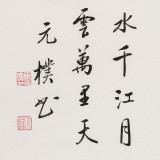 水千江月
雲萬里天
元樸書